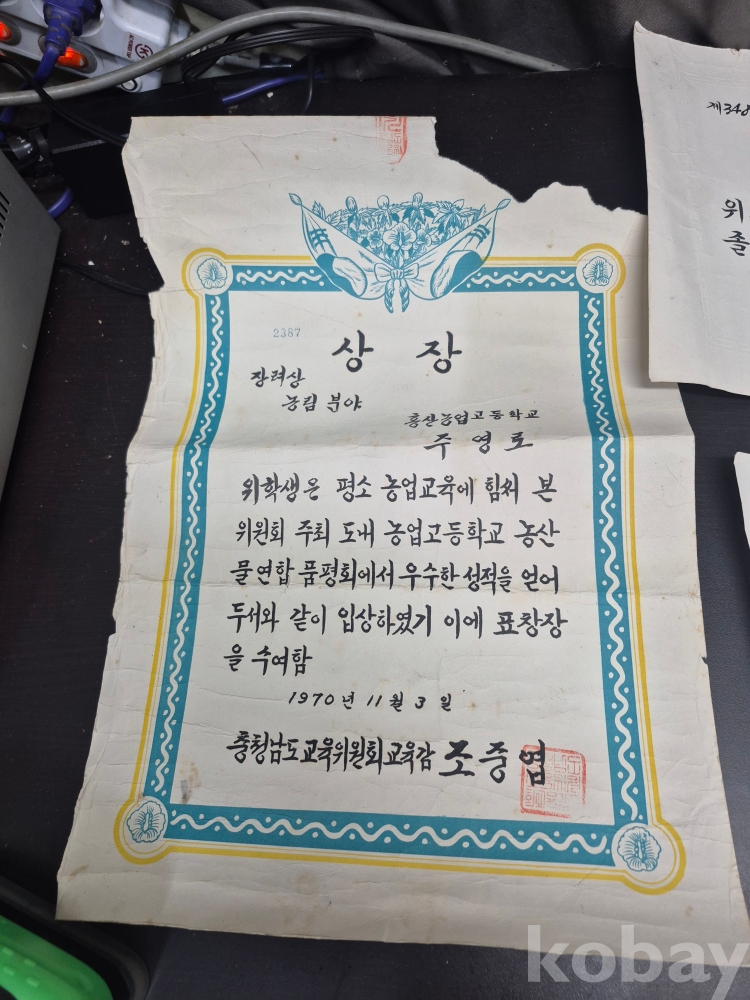 제348
위
졸
2387
상 장
장려상
농림 분야
홍산농업고등학교
주영로
위학생은 평소 농업교육에 힘써 본
위원회 주최 도내 농업고등학교 농산
물연합 품평회에서 우수한 성적을 얻어
두서와 같이 입상하였기 이에 표창장
을 수여함
1970년 11월 3일
충청남도교육위원회교육감 조중엽
kobay